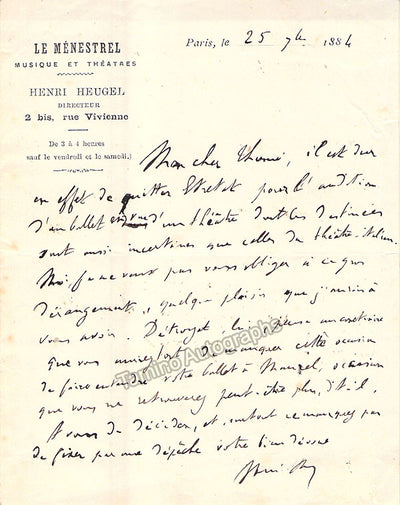 LE MÉNESTREL
MUSIQUE ET THÉATRES
HENRI HEUGEL
DIRECTEUR
2 bis, rue Vivienne
De 3 à 4 heures
sauf le vendredi et le samedi.)
Paris, le 25 7bre 1884
Mon cher Thomé, il est dur
en effet de quitter Etretat pour l'audition
d'un ballet en vue d'un théâtre dont les destinées
sont aussi incertaines que celles du théâtre-italien.
Moi je ne veux pas vous obliger à ce gros
dérangement, quelque plaisir que j'aurais à
vous avoir. D'un autre côté
que vous auriez tort de manquer cette occasion
de faire entendre votre ballet à Maurel, occasion
que vous ne retrouverez peut-être plus, dit-il.
A vous de décider, et surtout ne manquez pas
de fixer par une dépêche votre bien dévoué
Tamino Autographs